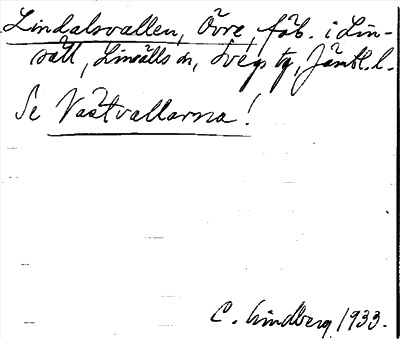 Lindalsvallen, Övre, fäb. i Lin-
säll, Linsälls sn, Svegs tg, Jämtl. l.
Se Västvallarna!
C. Lindberg 1933.